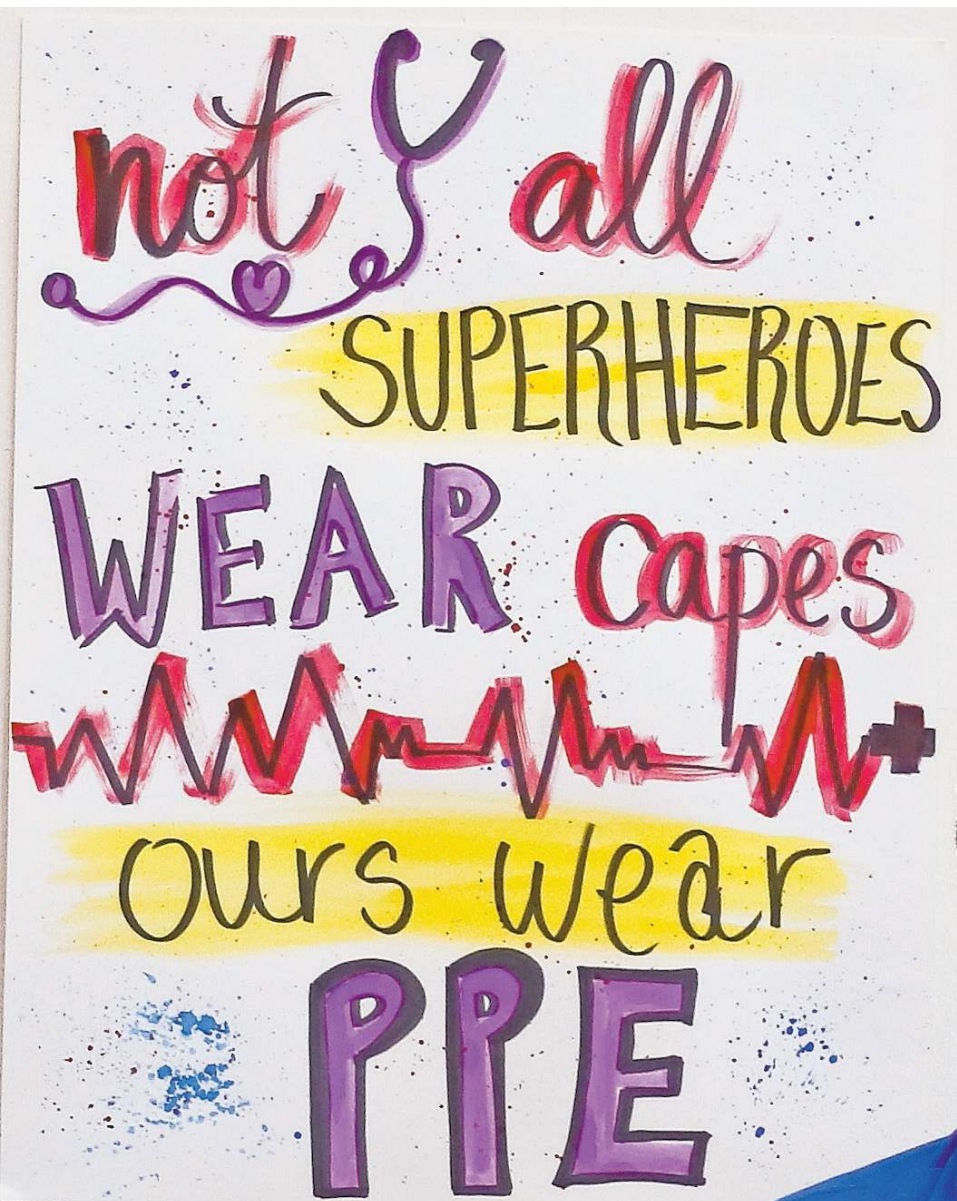 not all
SUPERHEROES
WEAR capes
ours wear
PPE